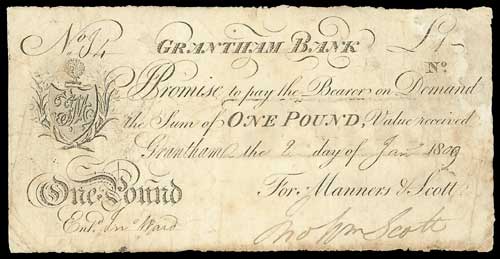 No. 14 GRANTHAM BANK £1-
No.
I Promise to pay the Bearer on Demand
the Sum of ONE POUND, Value received
Grantham the 2 day of Jan 1809
For, Manners & Scott
One Pound
Entd. Jno Ward
Jno Wm Scott